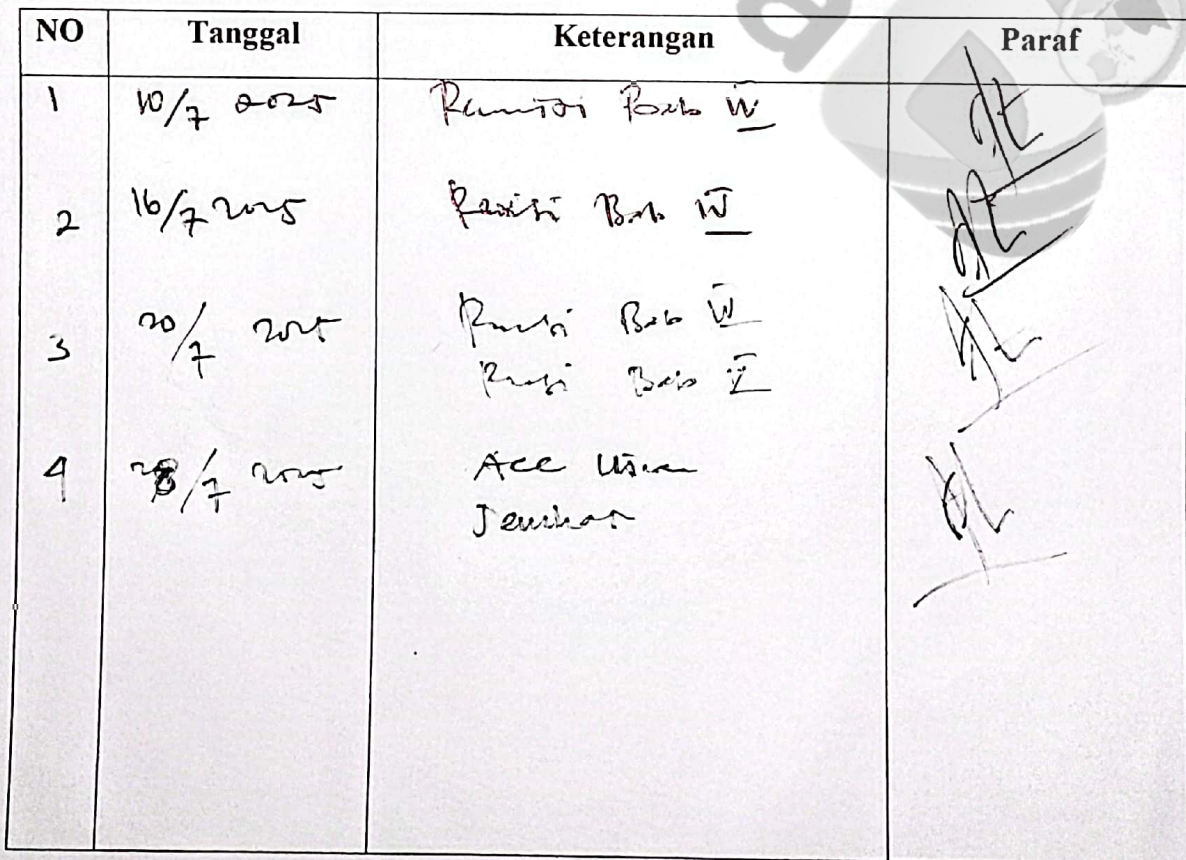 NO Tanggal Keterangan Paraf
1 10/7 2025 Revisi Bab IV
2 16/7 2025 Revisi Bab IV
3 20/7 2025 Revisi Bab IV
Revisi Bab V
4 28/7 2025 Acc Ujian
Seminar